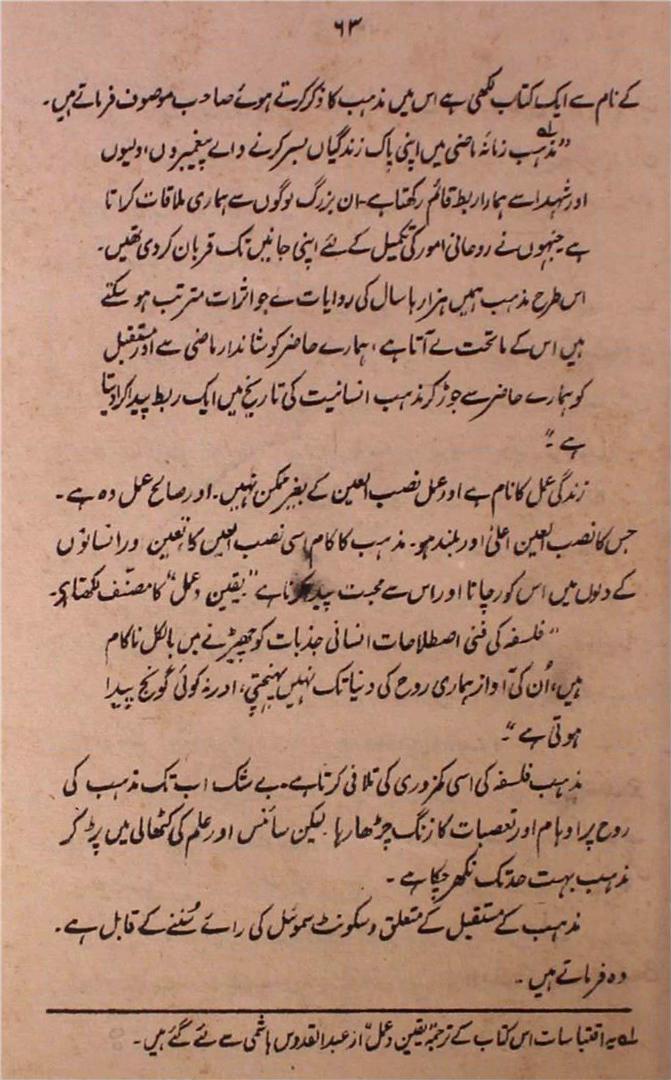 ۶۳
کے نام سے ایک کتاب لکھی ہے اس میں مذہب کا ذکر کرتے ہوئے صاحب موصوف فرماتے ہیں۔
"مذہب لہ زمانہ ماضی میں اپنی پاک زندگیاں بسر کرنے والے پیغمبروں، ولیوں
اور شہدا سے ہمارا ربط قائم رکھتا ہے۔ ان بزرگ لوگوں سے ہماری ملاقات کراتا
ہے جنہوں نے روحانی امور کی تکمیل کے لئے اپنی جانیں تک قربان کر دی تھیں۔
اس طرح مذہب ہمیں ہزارہا سال کی روایات سے جو اثرات مترتب ہو سکتے
ہیں اس کے ماتحت لے آتا ہے، ہمارے حاضر کو شاندار ماضی سے اور مستقبل
کو ہمارے حاضر سے جوڑ کر مذہب انسانیت کی تاریخ میں ایک ربط پیدا کرا دیتا
ہے۔"
زندگی عمل کا نام ہے اور عمل نصب العین کے بغیر ممکن نہیں۔ اور صالح عمل وہ ہے۔
جس کا نصب العین اعلیٰ اور بلند ہو۔ مذہب کا کام اسی نصب العین کا تعین اور انسانوں
کے دلوں میں اس کو رچانا اور اس سے محبت پیدا کرنا ہے "یقین و عمل" کا مصنف لکھتا ہے۔
"فلسفہ کی فنی اصطلاحات انسانی جذبات کو چھیڑنے میں بالکل ناکام
ہیں، اُن کی آواز ہماری روح کی دنیا تک نہیں پہنچتی، اور نہ کوئی گونج پیدا
ہوتی ہے۔"
مذہب فلسفہ کی اسی کمزوری کی تلافی کرتا ہے۔ بے شک اب تک مذہب کی
روح پر اوہام اور تعصبات کا زنگ چڑھا رہا لیکن سائنس اور علم کی کٹھالی میں پڑ کر
مذہب بہت حد تک نکھر چکا ہے۔
مذہب کے مستقبل کے متعلق وسکونٹ سموئل کی رائے سُننے کے قابل ہے۔
وہ فرماتے ہیں۔
لہ یہ اقتباسات اس کتاب کے ترجمہ یقین و عمل" از عبدالقدوس ہاشمی سے لئے گئے ہیں۔